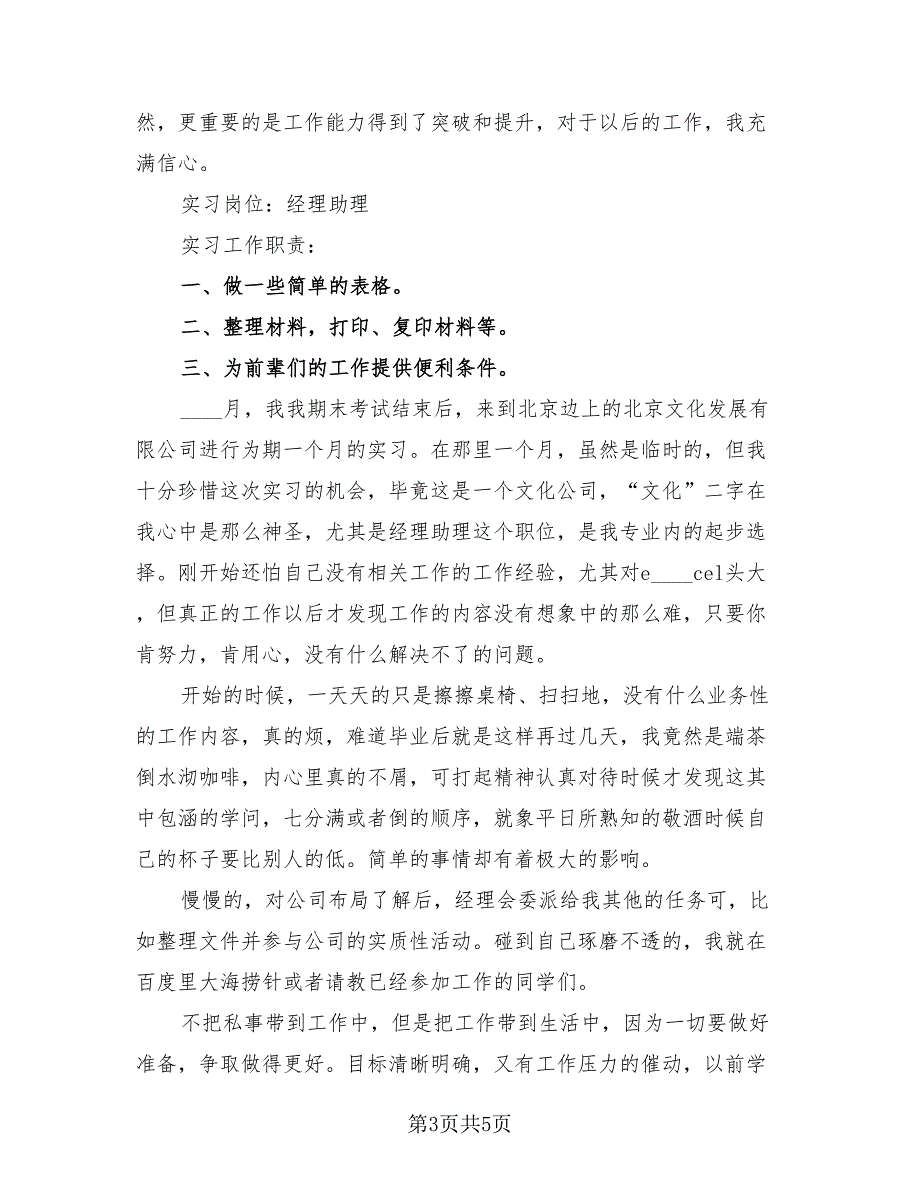 然，更重要的是工作能力得到了突破和提升，对于以后的工作，我充
满信心。
实习岗位：经理助理
实习工作职责：
一、做一些简单的表格。
二、整理材料，打印、复印材料等。
三、为前辈们的工作提供便利条件。
____月，我我期末考试结束后，来到北京边上的北京文化发展有
限公司进行为期一个月的实习。在那里一个月，虽然是临时的，但我
十分珍惜这次实习的机会，毕竟这是一个文化公司，“文化”二字在
我心中是那么神圣，尤其是经理助理这个职位，是我专业内的起步选
择。刚开始还怕自己没有相关工作的工作经验，尤其对e____cel头大
，但真正的工作以后才发现工作的内容没有想象中的那么难，只要你
肯努力，肯用心，没有什么解决不了的问题。
开始的时候，一天天的只是擦擦桌椅、扫扫地，没有什么业务性
的工作内容，真的烦，难道毕业后就是这样再过几天，我竟然是端茶
倒水沏咖啡，内心里真的不屑，可打起精神认真对待时候才发现这其
中包涵的学问，七分满或者倒的顺序，就象平日所熟知的敬酒时候自
己的杯子要比别人的低。简单的事情却有着极大的影响。
慢慢的，对公司布局了解后，经理会委派给我其他的任务可，比
如整理文件并参与公司的实质性活动。碰到自己琢磨不透的，我就在
百度里大海捞针或者请教已经参加工作的同学们。
不把私事带到工作中，但是把工作带到生活中，因为一切要做好
准备，争取做得更好。目标清晰明确，又有工作压力的催动，以前学
第3页共5页